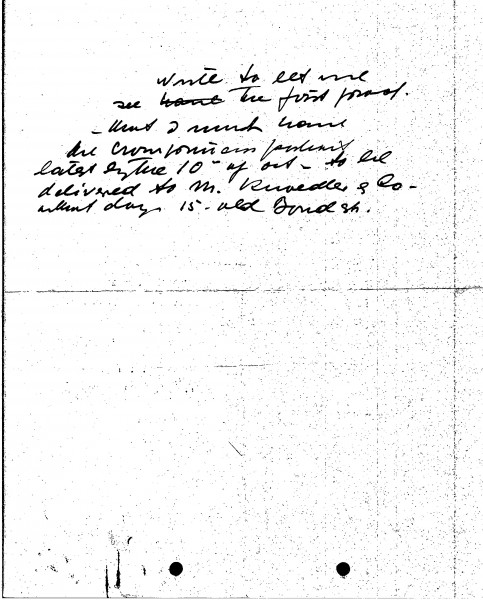 Write to let me
see have the first proof.
- that I must have
the
latest by the 10" of oct - to be
delivered to M. Knoedler & Co -
what day 15 - old Bond st.